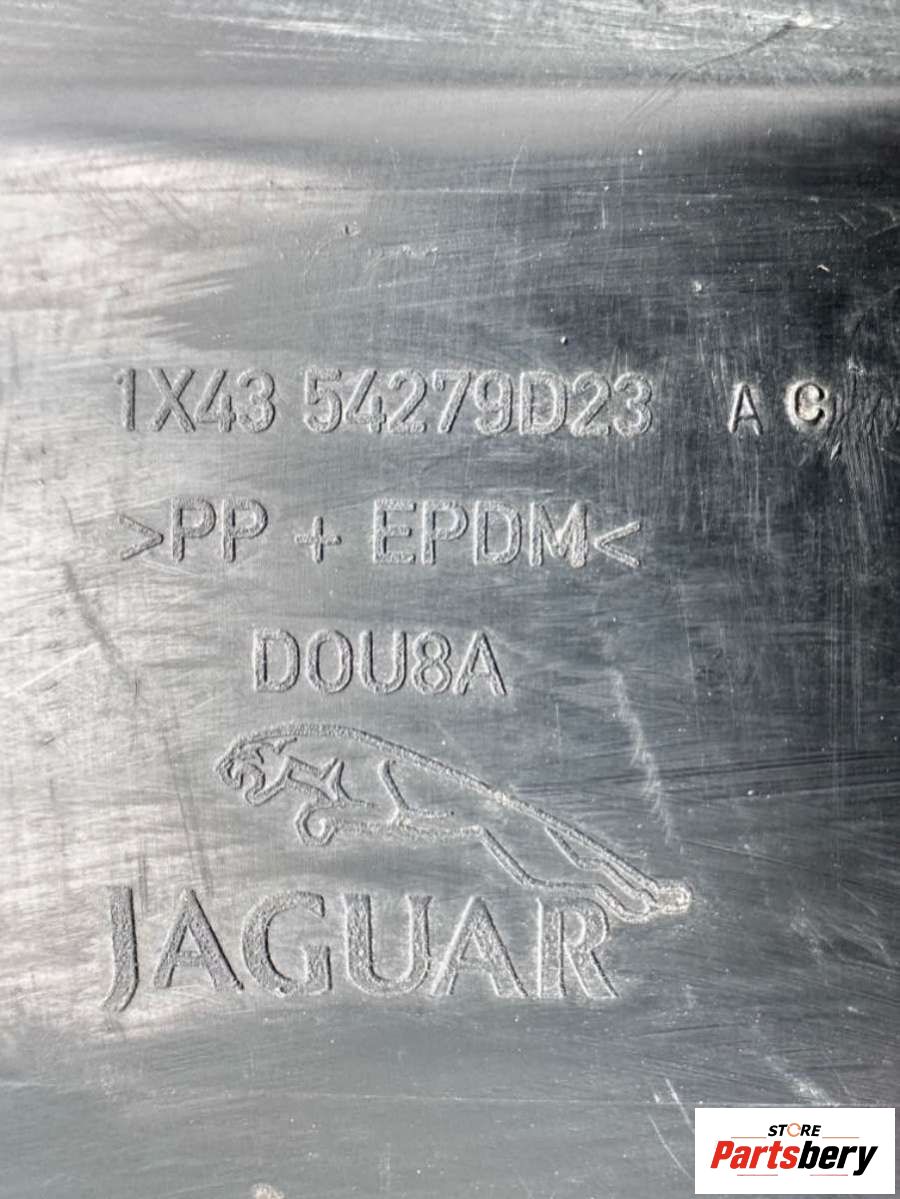 1X43 54279D23 AC
>PP + EPDM<
D0U8A
JAGUAR
STORE
Partsbery